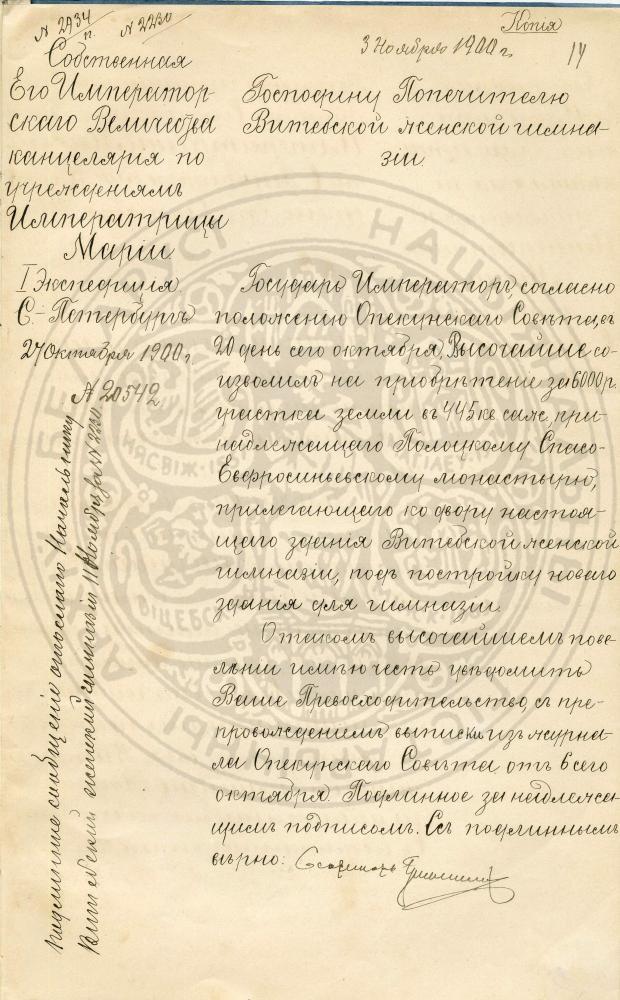 Копія
№ 2934
п.
№ 2230
3 Ноября 1900 г.
14
Собственная
Его Император-
скаго Величества
канцелярія по
учрежденіямъ
Императрицы
Маріи.
I Экспедиція
С.-Петербургъ
27 Октября 1900 г.
№ 20542
Господину Попечителю
Витебской женской гимна-
зіи.
Государь Императоръ, согласно
положенію Опекунскаго Совѣта, въ
20 день сего октября, Высочайше со-
изволилъ на пріобрѣтеніе за 6000 р.
участка земли въ 445 кв саж, при-
надлежащаго Полоцкому Спасо-
Евфросиньевскому монастырю,
прилегающаго ко двору настоя-
щаго зданія Витебской женской
гимназіи, подъ постройку новаго
зданія для гимназіи.
О такомъ высочайшемъ пове-
лѣніи имѣю честь увѣдомить
Ваше Превосходительство, съ пре-
провожденіемъ выписки изъ журна-
ла Опекунскаго Совѣта отъ 6 сего
октября. Подлинное за надлежа-
щимъ подписомъ. Съ подлиннымъ
вѣрно:
Подлинное сообщеніе отослано Начальнику
Витебской женской гимназіи 11 Ноября за № 2230.